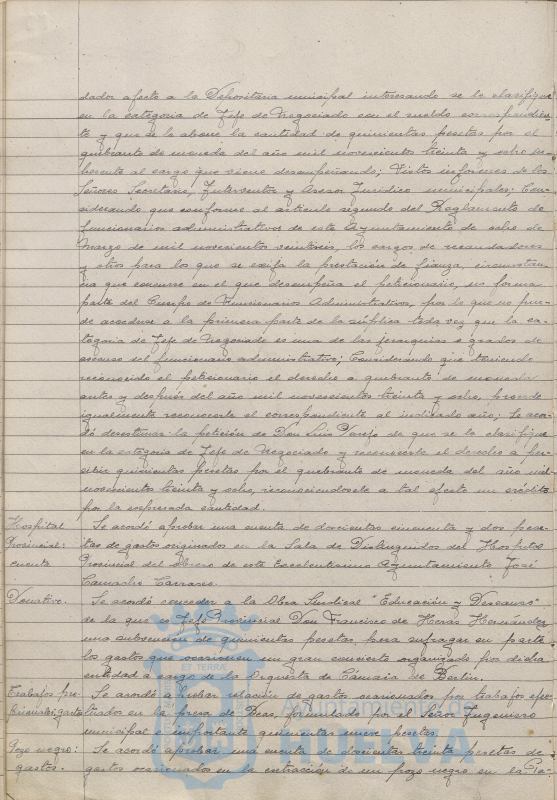 dador afecto a la Depositaria municipal interesando se le clasifique
en la categoria de Jefe de Negociado con el sueldo correspondien-
te y que se le abone la cantidad de quinientas pesetas por el
quebranto de moneda del año mil novecientos treinta y ocho in-
herente al cargo que viene desempeñando; Vistos informes de los
Señores Secretario, Interventor y Asesor Juridico municipales: Con-
siderando que conforme al articulo segundo del Reglamento de
funcionarios administrativos de este Ayuntamiento de ocho de
Marzo de mil novecientos veintiseis, los cargos de recaudadores
y otros para los que se exija la prestación de fianza, circunstan-
cia que concurre en el que desempeña el peticionario, no forma
parte del Cuerpo de Funcionarios Administrativos, por lo que no pue-
de accederse a la primera parte de la súplica toda vez que la ca-
tegoria de Jefe de Negociado es una de las jerarquias o grados de
ascenso del funcionario administrativo; Considerando que teniendo
reconocido el peticionario el derecho a quebranto de moneda
antes y despues del año mil novecientos treinta y ocho, procede
igualmente reconocerle el correspondiente al indicado año; Se acor-
dó desestimar la petición de Don Luis Varejo de que se le clasifique
en la categoria de Jefe de Negociado y reconocerle el derecho a per-
cibir quinientas pesetas por el quebranto de moneda del año mil
novecientos treinta y ocho, reconociendosele a tal efecto un crédito
por la expresada cantidad.
Hospital Se acordó aprobar una cuenta de doscientas cincuenta y dos pese-
Provincial: tas de gastos originados en la Sala de Distinguidos del Hospital
cuenta Provincial del obrero de este Excelentisimo Ayuntamiento José
Camacho Carrasco.
Donativo. Se acordó conceder a la Obra Sindical "Educación y Descanso"
de la que es Jefe Provincial Don Francisco de Heras Hernández
una subvención de quinientas pesetas, para sufragar en parte
los gastos que ocasionen un gran concierto organizado por dicha
entidad a cargo de la Orquesta de Camara de Berlin.
Trabajos Se acordó aprobar relación de gastos ocasionados por trabajos efec-
gastos tuados en la presa de Beas, formulado por el Señor Ingeniero
municipal e importante quinientas nueve pesetas.
Pozo negro: Se acordó aprobar una cuenta de doscientas treinta pesetas de
gastos. gastos ocasionados en la extracción de un pozo negro en la Pla-
ET TERRA
Ayuntamiento de
HUELVA